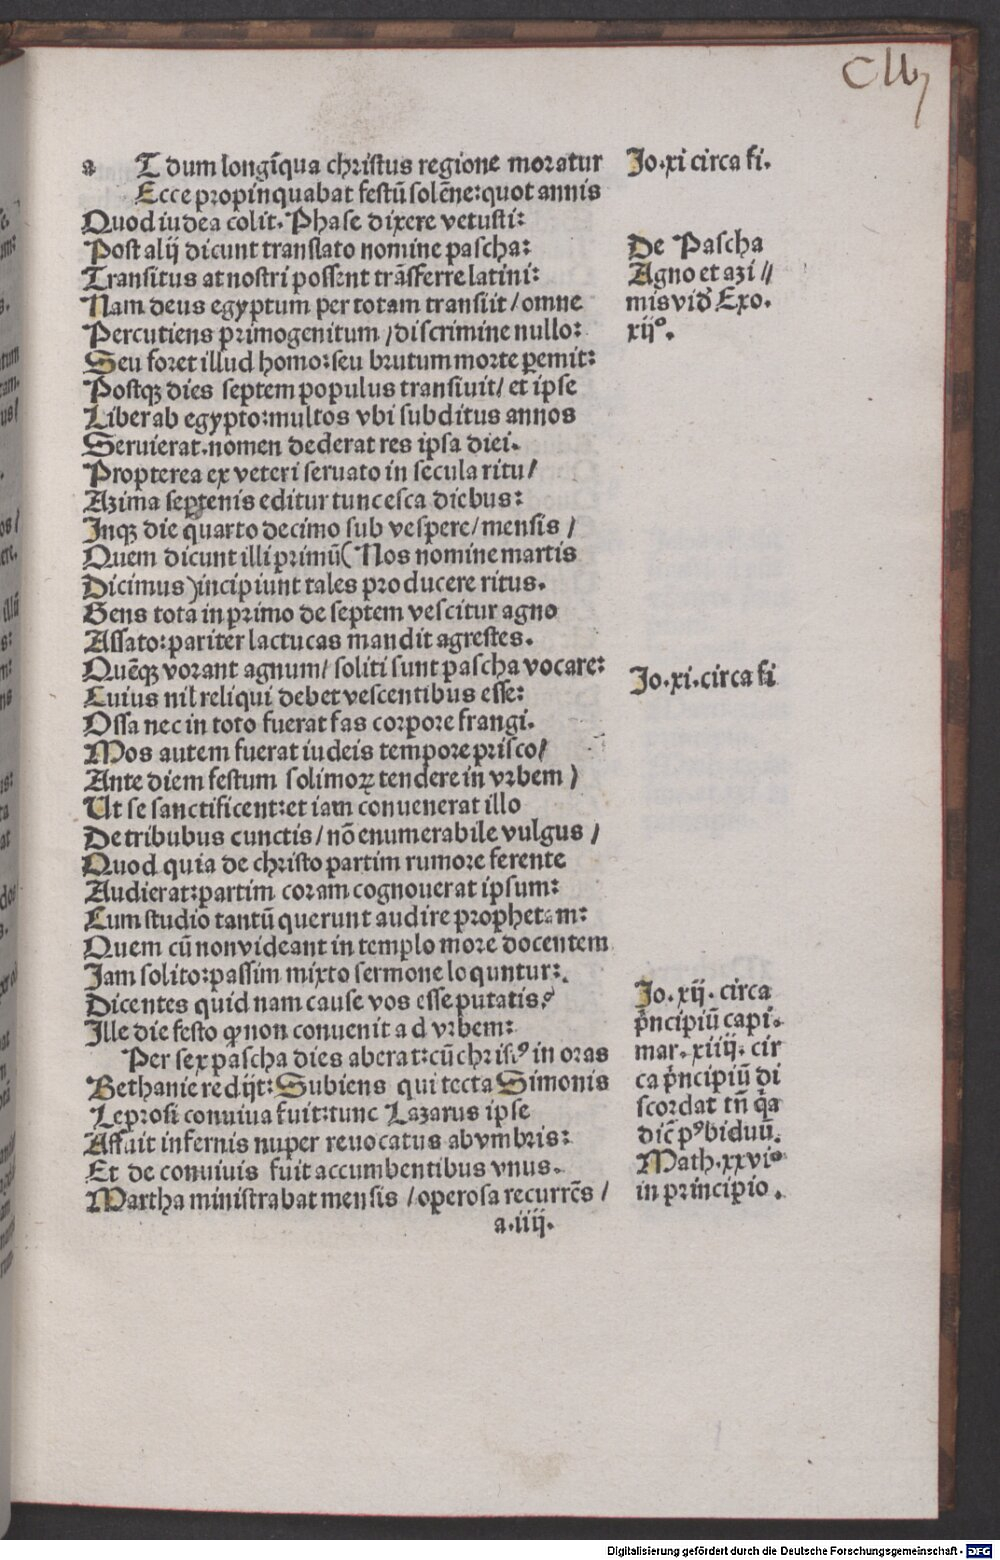 a T dum longīqua christus regione moratur
Ecce propinquabat festū solēne: quot annis
Quod iudea colit. Phase dixere vetusti:
Post alij dicunt translato nomine pascha:
Transitus at nostri possent trāsferre latini:
Nam deus egyptum per totam transiit / omne
Percutiens primogenitum / discrimine nullo:
Seu foret illud homo: seu brutum morte ꝑemit:
Postqꝫ dies septem populus transiuit / et ipse
Liber ab egypto: multos vbi subditus annos
Seruierat. nomen dederat res ipsa diei.
Propterea ex veteri seruato in secula ritu /
Azima septenis editur tunc esca diebus:
Inqꝫ die quarto decimo sub vespere / mensis /
Quem dicunt illi primū (Nos nomine martis
Dicimus) incipiunt tales producere ritus.
Gens tota in primo de septem vescitur agno
Assato: pariter lactucas mandit agrestes.
Quēqꝫ vorant agnum / soliti sunt pascha vocare:
Cuius nil reliqui debet vescentibus esse:
Ossa nec in toto fuerat fas corpore frangi.
Mos autem fuerat iudeis tempore prisco /
Ante diem festum solimoꝝ tendere in vrbem /
Ut se sanctificent: et iam conuenerat illo
De tribubus cunctis / nō enumerabile vulgus /
Quod quia de christo partim rumore ferente
Audierat: partim coram cognouerat ipsum:
Cum studio tantū querunt audire prophetam:
Quem cū non videant in templo more docentem
Jam solito: passim mixto sermone loquntur:
Dicentes quid nam cause vos esse putatis?
Ille die festo ꝙ non conuenit ad vrbem:
Per sex pascha dies aberat: cū chrisꝰ in oras
Bethanie redijt: Subiens qui tecta Simonis
Leprosi conuiua fuit: tunc Lazarus ipse
Affuit infernis nuper reuocatus ab vmbris:
Et de conuiuis fuit accumbentibus vnus.
Martha ministrabat mensis / operosa recurrēs /
a.iiij.
Jo.xi circa fi.
De Pascha
Agno et azi //
mis vid̕ Exo.
xijº.
Jo.xi.circa fi
Jo.xij. circa
p̄ncipiū capi.
mar.xiiij. cir
ca p̄ncipiū di
scordat tn̄ qa
dic̄ pꝰ biduū.
Math.xxviº
in principio.
Digitalisierung gefördert durch die Deutsche Forschungsgemeinschaft - DFG